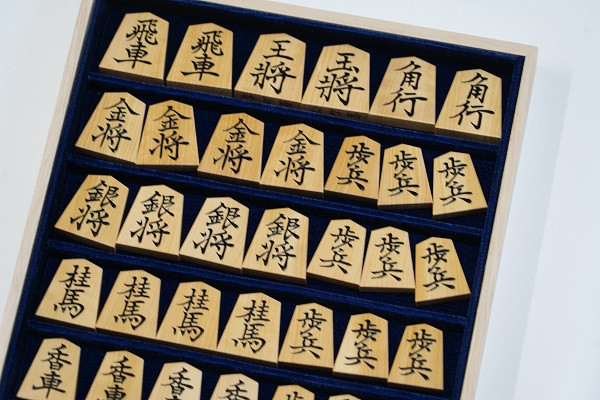 飛車 飛車 王将 玉将 角行 角行
金将 金将 金将 金将 歩兵 歩兵 歩兵
銀将 銀将 銀将 銀将 歩兵 歩兵 歩兵
桂馬 桂馬 桂馬 桂馬 歩兵 歩兵 歩兵
香車 香車 香 香